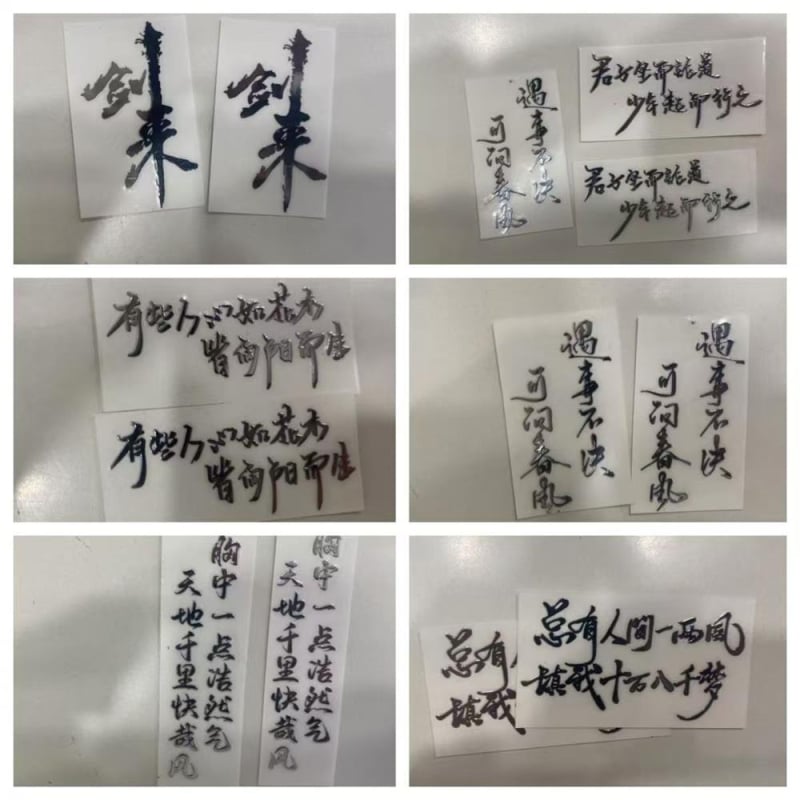 剑来
剑来
遇事不决
可问春风
君子坐而论道
少年起而行之
君子坐而论道
少年起而行之
有些人心如花木
皆向阳而生
有些人心如花木
皆向阳而生
遇事不决
可问春风
遇事不决
可问春风
胸中一点浩然气
天地千里快哉风
胸中一点浩然气
天地千里快哉风
总有
填我
总有人间一两风
填我十万八千梦